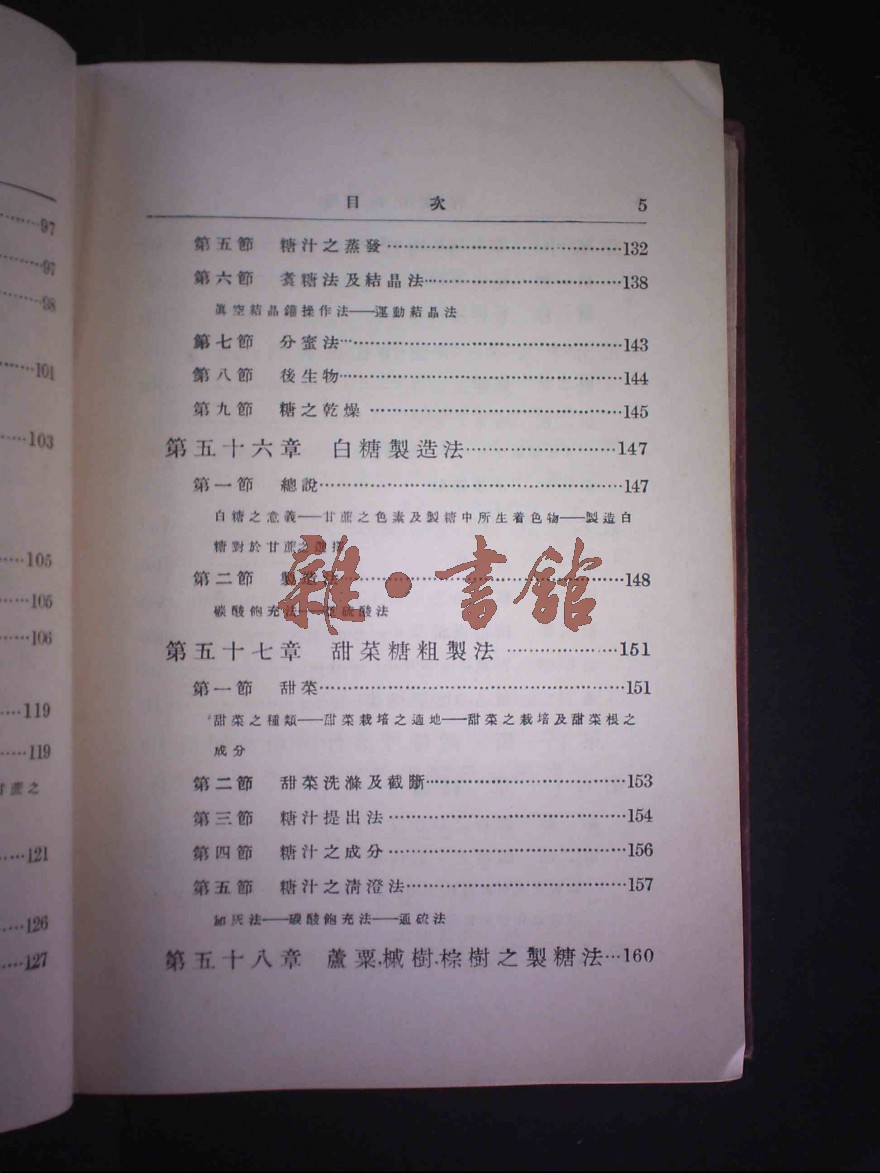 97
97
98
101
103
105
105
106
119
119
甘蔗之
121
126
127
目 次 5
第五節 糖汁之蒸發…………132
第六節 煑糖法及結晶法…………138
眞空結晶鑵操作法——運動結晶法
第七節 分蜜法…………143
第八節 後生物…………144
第九節 糖之乾燥…………145
第五十六章 白糖製造法…………147
第一節 總說…………147
白糖之意義——甘蔗之色素及製糖中所生着色物——製造白
糖對於甘蔗之
第二節 製造法…………148
碳酸飽充法 硫酸法
第五十七章 甜菜糖粗製法…………151
第一節 甜菜…………151
甜菜之種類——甜菜栽培之適地——甜菜之栽培及甜菜根之
成分
第二節 甜菜洗滌及截斷…………153
第三節 糖汁提出法…………154
第四節 糖汁之成分…………156
第五節 糖汁之淸澄法…………157
加灰法——碳酸飽充法——通硫法
第五十八章 蘆粟,槭樹,棕樹之製糖法…160
雜·書館